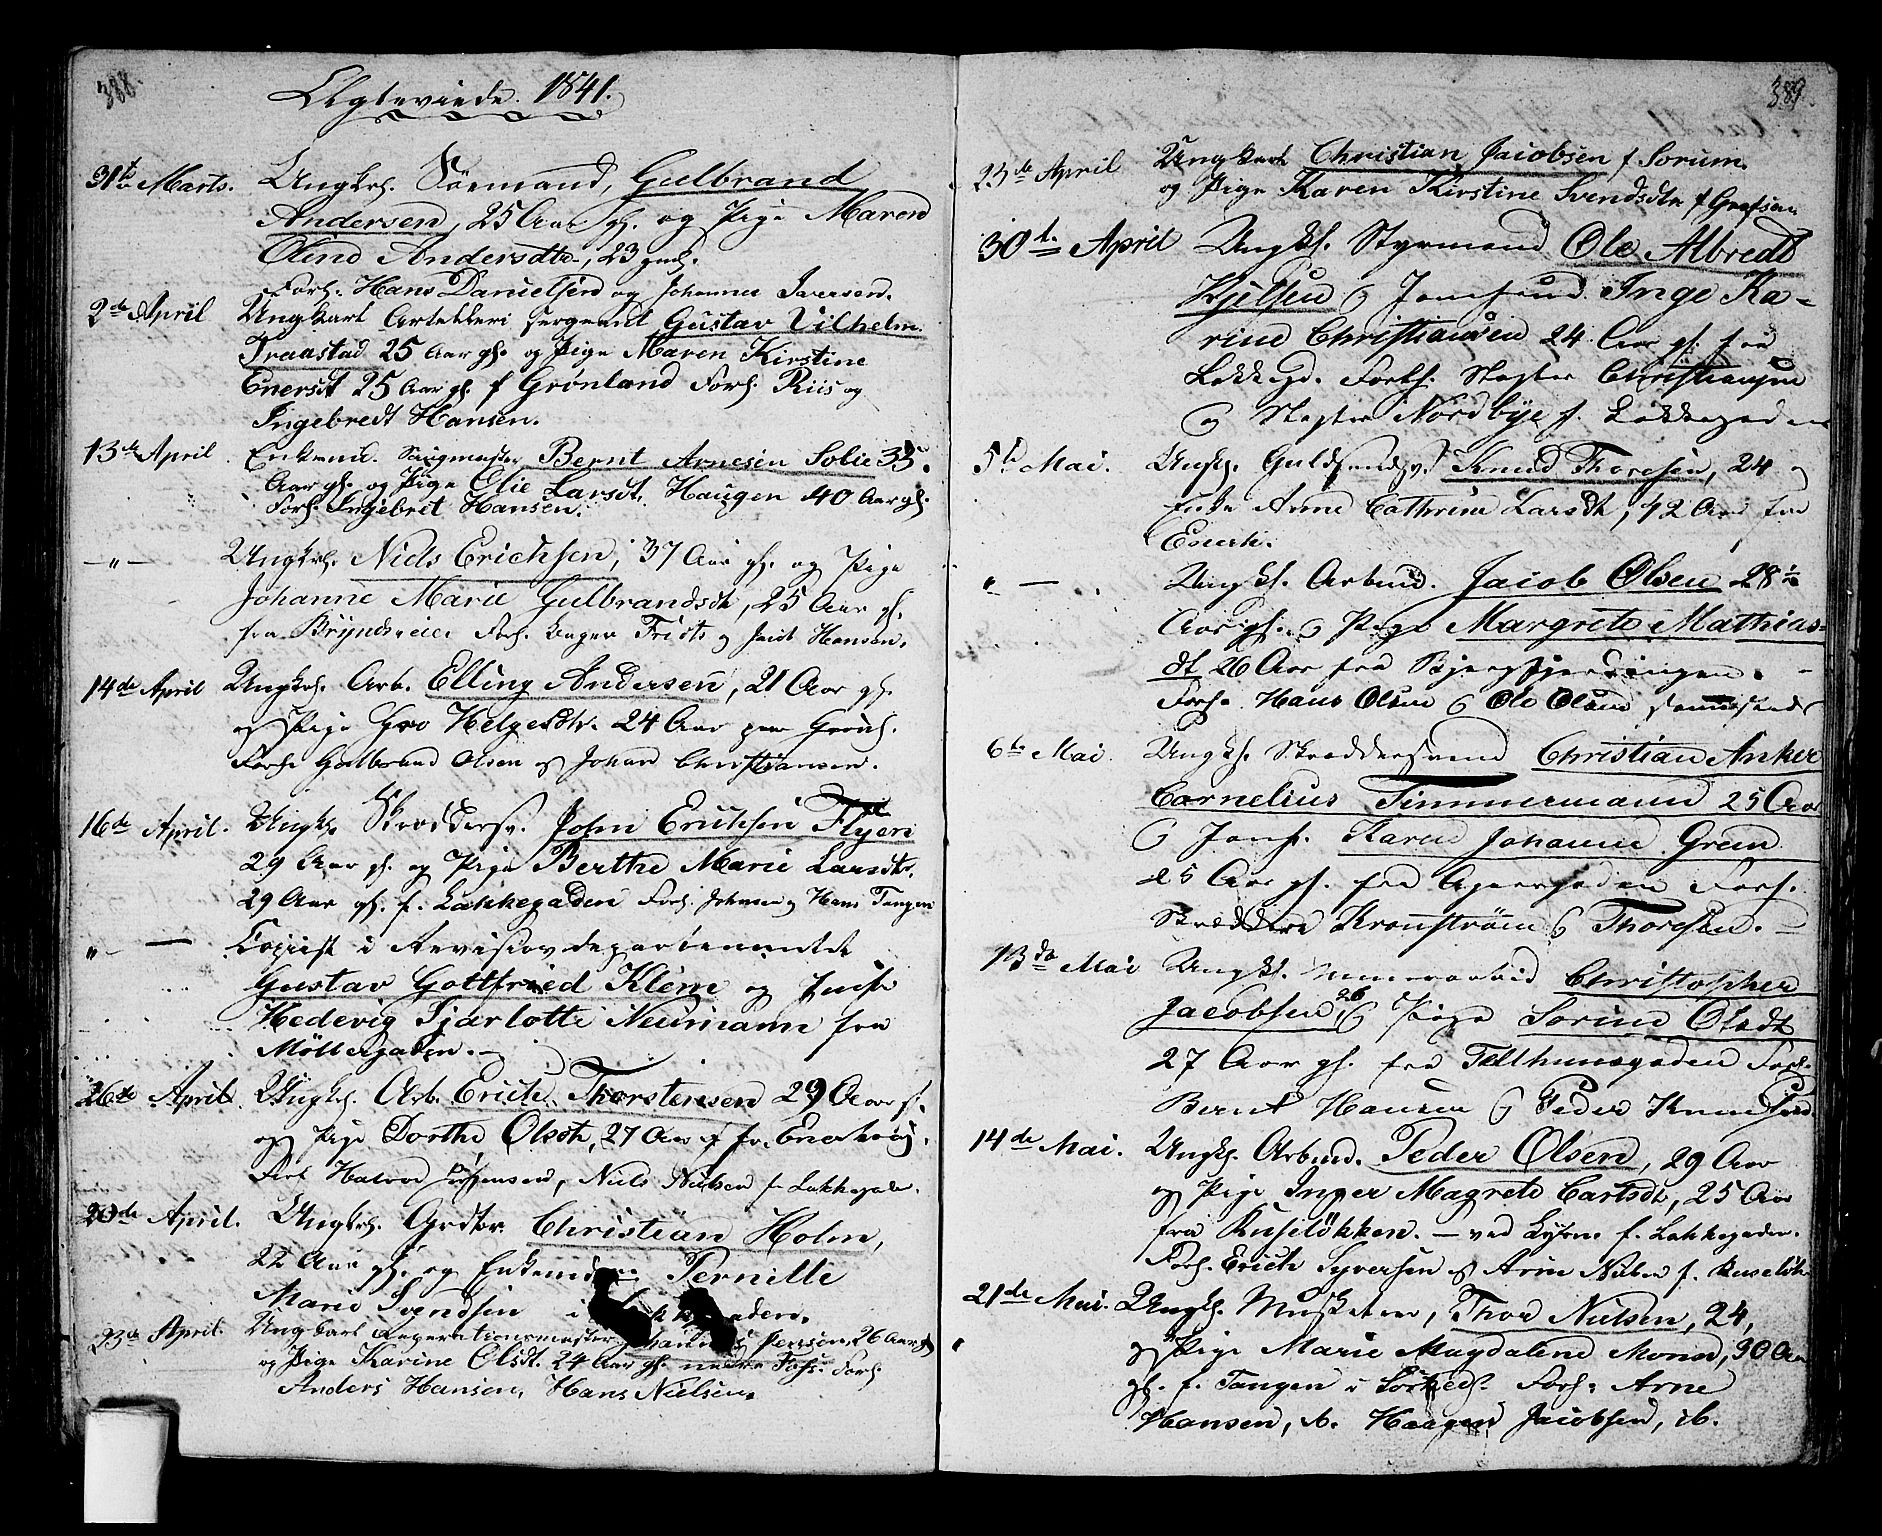 388.
Ægteviede. 1841.
31te Marts. Ungkrl. Sømand, Gulbrand
Andersen, 25 Aar gl. og Pige Maren
Oline Andersdtr, 23 gml.
Forl. Hans Danielsen og Johannes Iversen.
2de April Ungkarl Artelleri sergeant Gustav Vilhelm
Traastad 25 Aar gl. og Pige Maren Kirstine
Enersdt 25 Aar gl. f Grønland Forl. Riis og
Ingebredt Hansen.
13de April. Enkemd. Bernt Arnesen Solie 35
Aar gl. og Pige Elie Larsdt. Haugen 40 Aar gl.
Forl. Ingebret Hansen.
—"— Ungkrl. Niels Erichsen, 37 Aar gl. og Pige
Johanne Marie Gulbrandsdt, 25 Aar gl.
fra Forl. og Hansen.
14de April Ungkrl. Arb. Elling Andersen, 21 Aar gl.
og Pige Gro Helgesdtr. 24 Aar
Forl. Gulbrand Olsen og Johan Christiansen.
16de April. Ungkrl. Skræddersv. John Erichsen Flyen
29 Aar gl. og Pige Berthe Marie Larsdtr.
29 Aar gl. f. Lakkegaden Forl. Johnsen og Hans Tangen
" — Copiist i Revisionsdepartementet
Gustav Gottfried Klem og
Hedevig Sjarlotte Neumann fra
Møllergaden.—
26de April. Ungkrl. Arb. Erich Thorstensen 29 Aar gl.
og Pige Dorthe Olsdtr, 27 Aar gl fra
Forl Halvor Jørgensen, Niels Nielsen f. Lakkegade.
20de April. Ungkrl. Christian Holm,
22 Aar gl. og Pernille
Marie Svendsen i
23de April. Ungkarl Johannes Jensen, 26 Aar gl
og Pige Karine Olsdt. 24 Aar gl. Forl.
Anders Hansen, Hans Nielsen.
389.
23de April Ungkarl Christian Jacobsen f Sorum.
og Pige Karen Kirstine Svendsdtr f Grefsen
30te April Ungkl. Styrmand Ole Albredt
Kjelsen og Jomfrue Inge Ka-
rine Christiansen 24 Aar gl. fra
Lakkegd. Forl. Slagter Christiansen
og Slagter Nordbye f. Lakkegaden
5te Mai. Ungkl. Guldsmedsv. Knud Thoresen, 24 og
Enke Anne Cathrine Larsdt, 42 Aar fra
" — Ungkl. Arbmd. Jacob Olsen 28 1/2
Aar gl. og Pige Margrete Mathias-
dt 26 Aar fra
Forl. Hans Olsen og Ole Olsen
6te Mai. Ungkl. Skræddersvend Christian Anker
Cornelius Timmermann 25 Aar
og Jomf. Karen Johanne Grein
25 Aar gl. fra Agersgaden Forl.
Skræddere Kronstrøm og Thoresen.—
13de Mai Ungkl. Christopher
Jacobsen, 26 og Pige Sorine Olsdt
27 Aar gl. fra Telthuusgaden Forl.
Bernt Hansen og Peder Knudsen
14de Mai. Ungkl. Arbmd. Peder Olsen, 29 Aar
og Pige Inger Magrete Carlsdt, 25 Aar
fra Ruseløkken.— ved f. Lakkegaden.
Forl. Erich Syversen og Arne Nielsen f. Ruseløk
21de Mai. Ungkl. Musketeer, Thor Nielsen, 24,
og Pige Marie Magdalene Monsd, 30 Aar
gl. f. Tangen i Forl. Arne
Hansen, ib. Haagen Jacobsen, ib.